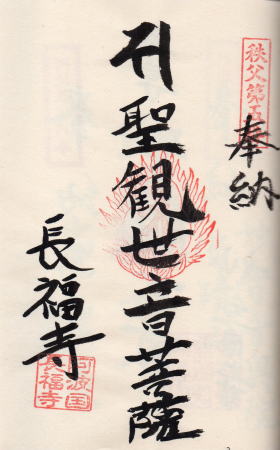 秩父第五
奉納
聖観世音菩薩
長福寺
長福寺